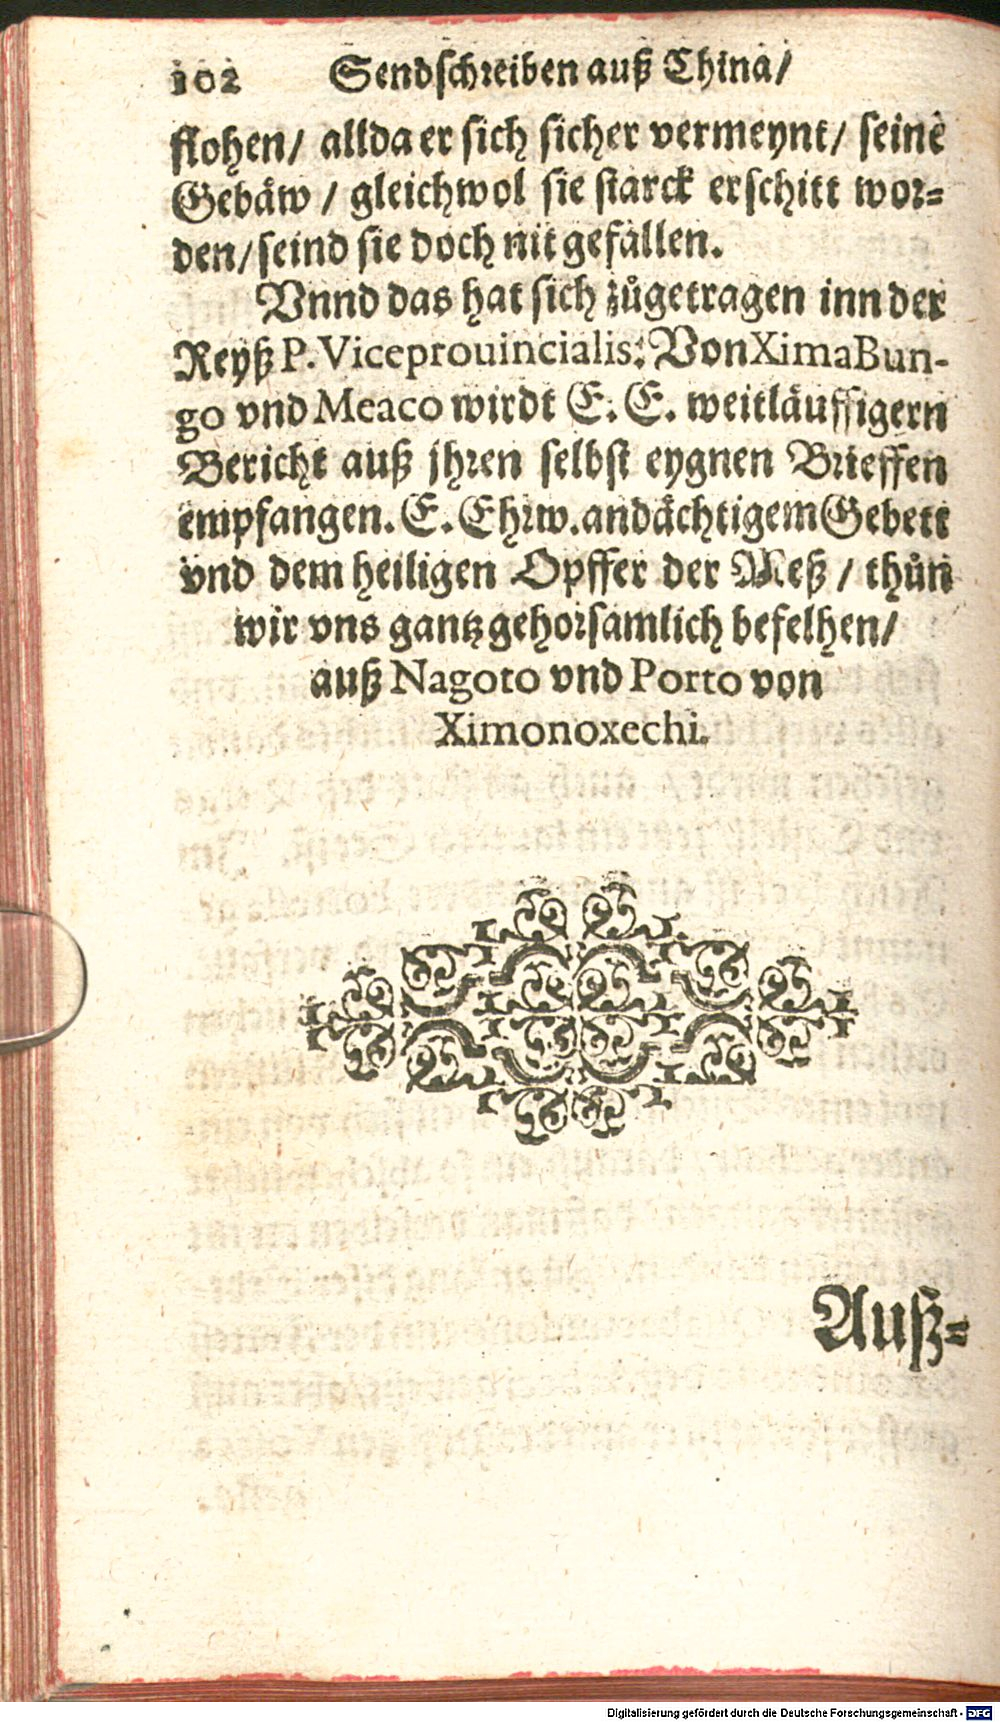 102 Sendschreiben auß China/
flohen/ allda er sich sicher vermeynt/ seinē
Gebäw / gleichwol sie starck erschitt wor-
den/ seind sie doch nit gefallen.
Vnnd das hat sich zůgetragen inn der
Reyß P. Viceprouincialis: Von Xima Bun-
go vnd Meaco wirdt E. E. weitläuffigern
Bericht auß jhren selbst eygnen Brieffen
empfangen. E. Ehrw. andächtigem Gebett
vnd dem heiligen Opffer der Meß / thůn
wir vns gantz gehorsamlich befelhen/
auß Nagoto vnd Porto von
Ximonoxechi.
Auß-
Digitalisierung gefördert durch die Deutsche Forschungsgemeinschaft - DFG